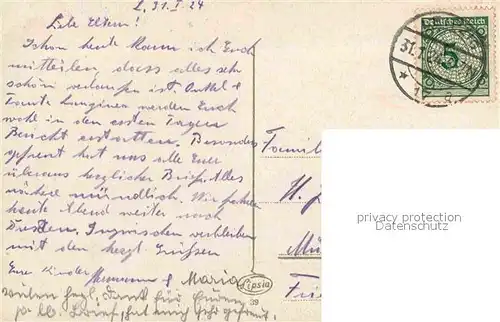 L, 31.I.24
Liebe Eltern!
Schon heute kann ich Euch
mitteilen, dass alles sehr
schön verlaufen ist. Onkel &
Tante werden Euch
wohl in den ersten Tagen
Bericht erstatten. Besonders
gefreut hat uns alle Euer
überaus herzlicher Brief. Alles
nähere mündlich. Wir fahren
heute Abend weiter nach
Dresden. Inzwischen verbleiben
mit den herzl. Grüssen
Eure Kinder Hermann & Maria
herzl. Dank für
lb. Brief, hat mich sehr gefreut.
Deutsches Reich
5
31.
Familie
H.
Mü
Lipsia
39
privacy protection
Datenschutz